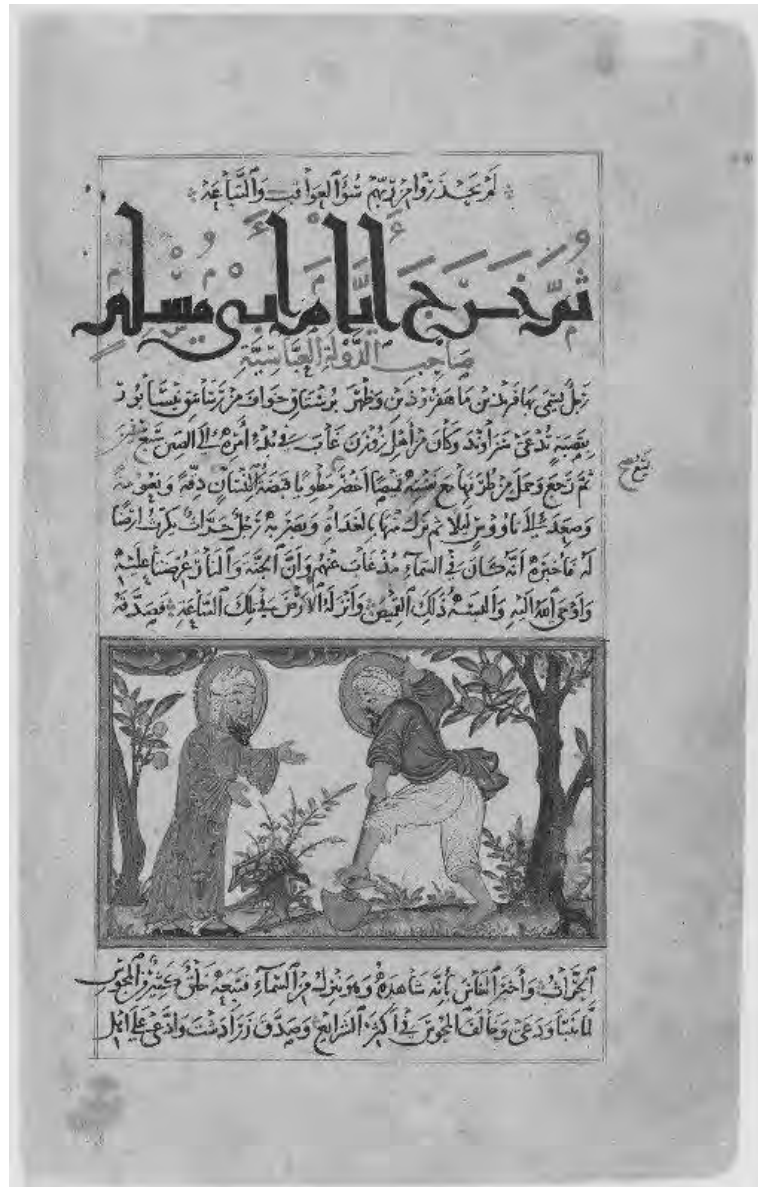 لم يحذروا من ربهم سوء العواقب والساعة
ثم خرج ايام ابى مسلم
صاحب الدولة العباسية
رجل يسمى بهافريذ بن ماه فروذين وظهر برستاق خواف من رساتيق نيسابور
بقصبة تدعى سراوند وكان من اهل زوزن غاب فى بدء امره الى الصين سبع
ثم رجع وحمل من طرفها مع نفسه قميصا اخضر مطويا قبضة الانسان دقة ونعومة
وصعد ليلا ثم نزل منها بالغداة وبصر به رجل حراث يكرث ارضا
له فاخبره انه كان فى السماء مذ غاب عنهم وان الجنة والنار عرضتا عليه
واوحى الله اليه والبسه ذلك القميص وانزله الارض فى تلك الساعة فصدقه
الحراث واخبر الناس بانه شاهده وهو ينزل من السماء فتبعه خلق كثير من المجوس
لما تنبا ودعى وخالف المجوس فى اكثر الشرايع وصدق زرادشت وادعى على اهل